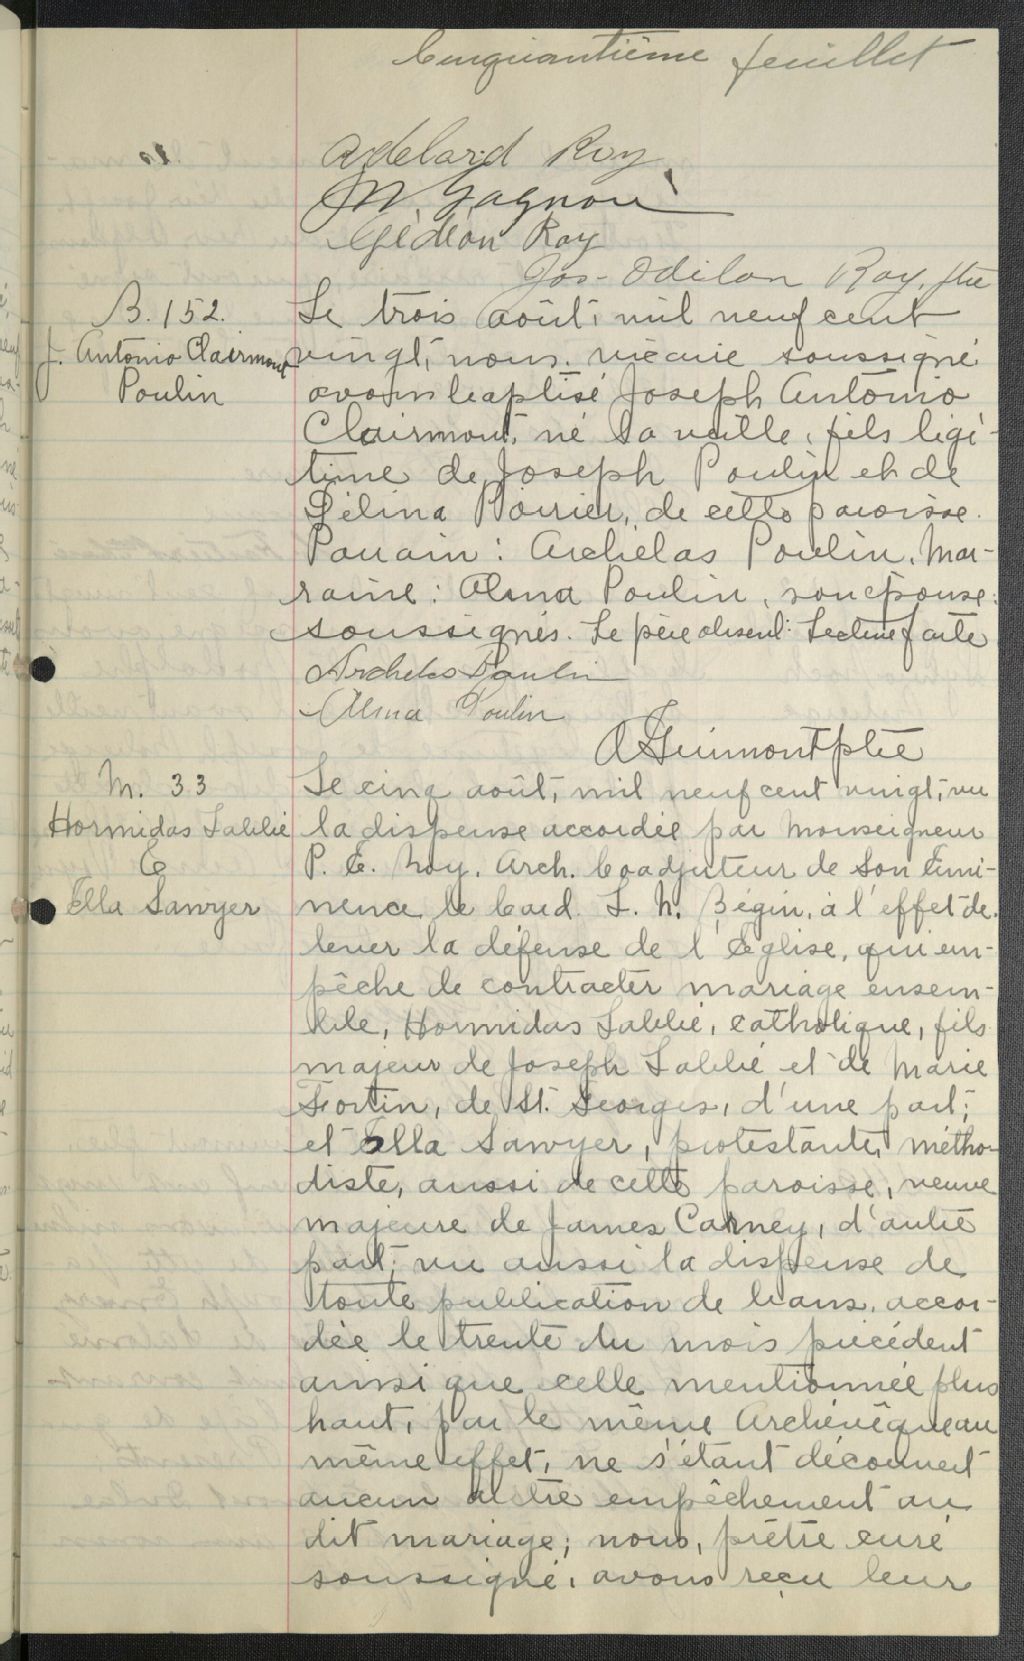 Cinquantième feuillet
Adelard Roy
W. Gagnon
Gédéon Roy
Jos-Odilon Roy, ptre
B. 152.
J. Antonio Clairmont
Poulin
Le trois août, mil neuf cent
vingt, nous, vicaire soussigné
avons baptisé Joseph Antonio
Clairmont, né la veille, fils légi-
time de Joseph Poulin et de
Délina Poirier, de cette paroisse.
Parrain: Archelas Poulin. Mar-
raine: Alma Poulin, son épouse:
soussignés. Le père absent. Lecture faite
Archelas Poulin
Alma Poulin
A Guimont ptre
M. 33
Hormidas Labbé
&
Ella Sawyer
Le cinq août, mil neuf cent vingt, vu
la dispense accordée par Monseigneur
P. E. Roy, Arch. Coadjuteur de Son Emi-
nence le Card. L. N. Bégin, à l'effet de
lever la défense de l'Eglise, qui em-
pêche de contracter mariage ensem-
ble, Hormidas Labbé, catholique, fils
majeur de Joseph Labbé et de Marie
Fortin, de St. Georges, d'une part;
et Ella Sawyer, protestante, métho-
diste, aussi de cette paroisse, veuve
majeure de James Carney, d'autre
part; vu aussi la dispense de
toute publication de bans, accor-
dée le trente du mois précédent
ainsi que celle mentionnée plus
haut, par le même Archevêque au
même effet, ne s'étant découvert
aucun autre empêchement au
dit mariage; nous, prêtre curé
soussigné, avons reçu leur